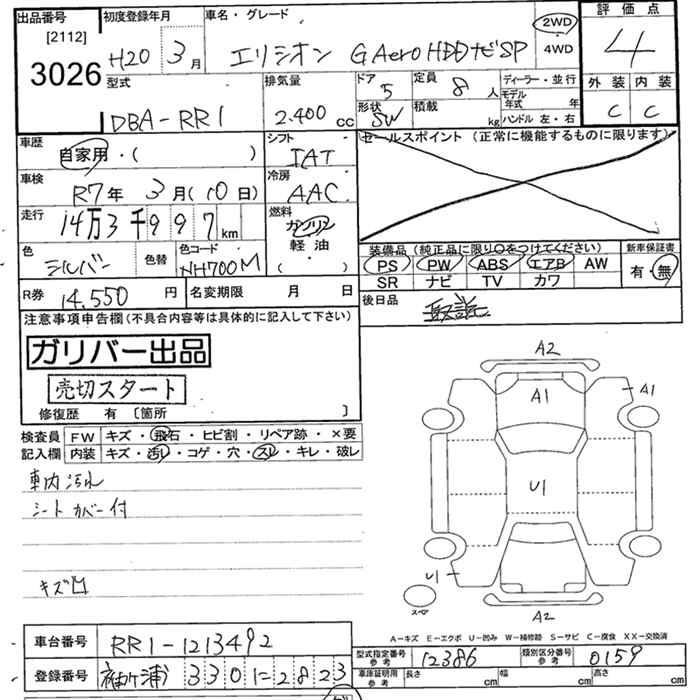 出品番号
[2112]
3026
初度登録年月
H20 3月
車名・グレード
エリシオン G Aero HDDナビSP
2WD
4WD
評価点
4
外装 内装
C C
型式
DBA-RR1
排気量
2.400 cc
ドア
5
定員
8 人
形状
SW
積載
kg
ディーラー・並行
モデル年式 年
ハンドル 左・右
車歴
自家用・( )
シフト
IAT
セールスポイント (正常に機能するものに限ります)
車検
R7年 3月(10日)
冷房
AAC
走行
14万3千997km
燃料
ガソリン
軽油
( )
色
シルバー
色替
色コード
NH700M
装備品 (純正品に限り○をつけてください)
PS PW ABS エアB AW
SR ナビ TV カワ
新車保証書
有・無
R券
14,550 円
名変期限 月 日
後日品
取説
注意事項申告欄(不具合内容等は具体的に記入して下さい)
ガリバー出品
売切スタート
修復歴 有 [箇所 ]
検査員
記入欄
FW キズ・飛石・ヒビ割・リペア跡・×要
内装 キズ・汚レ・コゲ・穴・スレ・キレ・破レ
車内汚れ
シートカバー付
キズ凹
A2
A1
A1
U1
U1
スペア
A2
A-キズ E-エクボ U-凹み W-補修跡 S-サビ C-腐食 XX-交換済
車台番号
RR1-1213492
登録番号
袖ヶ浦 330 に 2823
型式指定番号
参考
12386
類別区分番号
参考
0159
車庫証明用
参考
長さ cm
幅 cm
高さ cm